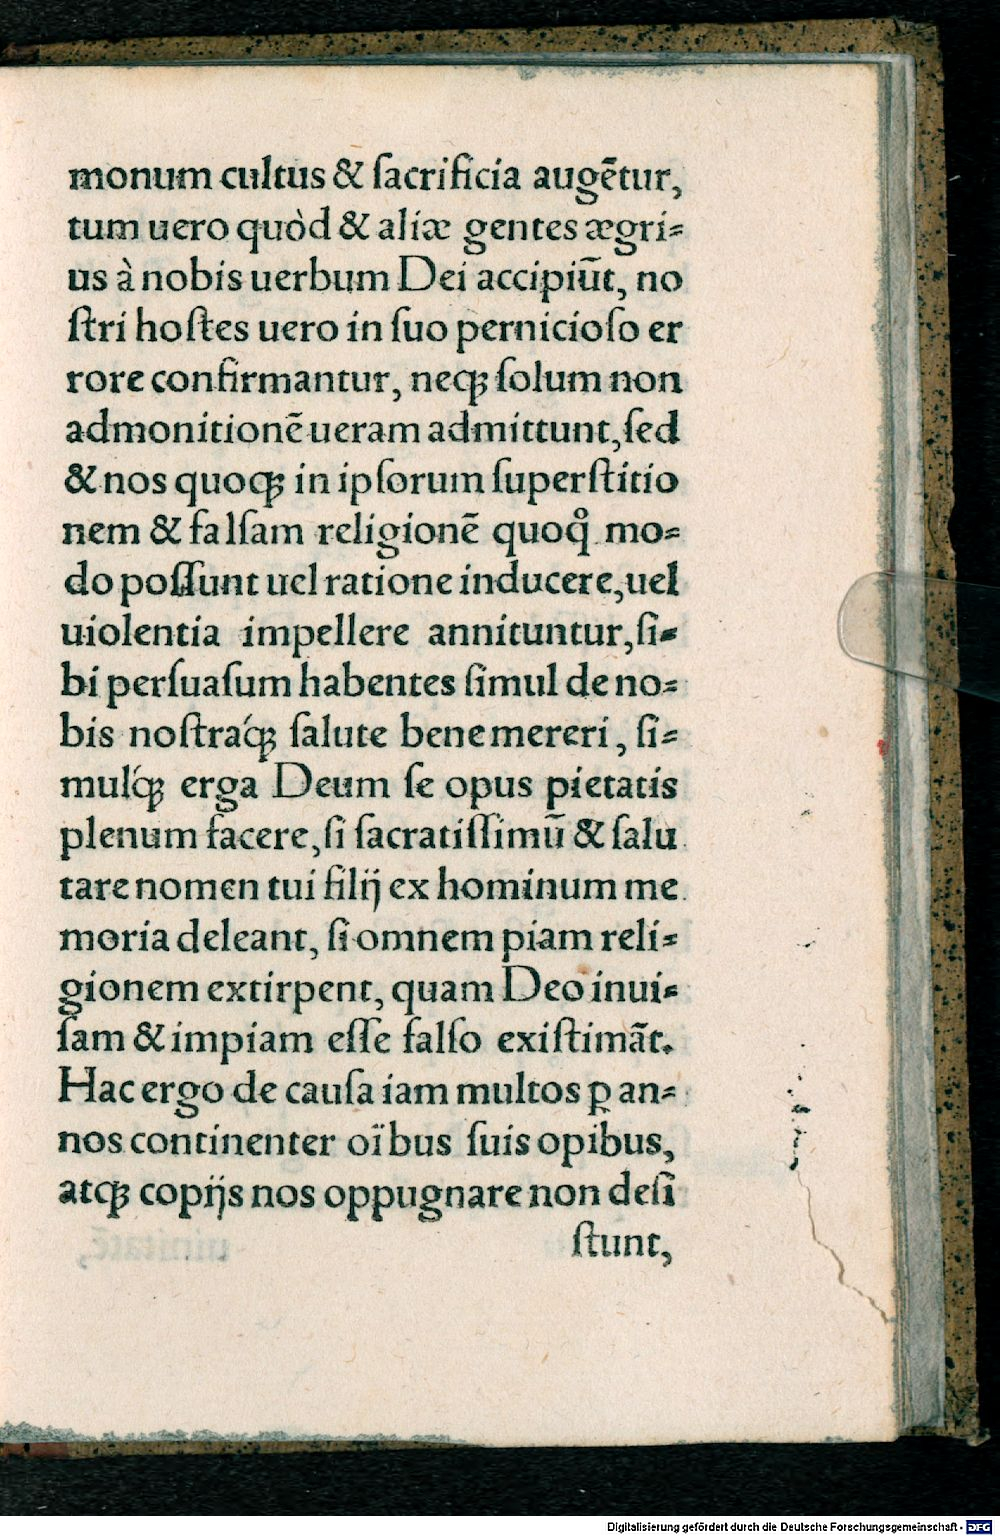 monum cultus & ſacrificia augẽtur,
tum uero quòd & aliæ gentes ægri⸗
us à nobis uerbum Dei accipiũt, no
ſtri hoſtes uero in ſuo pernicioſo er
rore confirmantur, neqꝫ ſolum non
admonitionẽ ueram admittunt, ſed
& nos quoqꝫ in ipſorum ſuperſtitio
nem & falſam religionẽ quoq̊ mo⸗
do poſſunt uel ratione inducere, uel
uiolentia impellere annituntur, ſi⸗
bi perſuaſum habentes ſimul de no⸗
bis noſtraq́ꝫ ſalute bene mereri, ſi⸗
mulq́ꝫ erga Deum ſe opus pietatis
plenum facere, ſi ſacratiſſimũ & ſalu
tare nomen tui filij ex hominum me
moria deleant, ſi omnem piam reli⸗
gionem extirpent, quam Deo inui⸗
ſam & impiam eſſe falſo exiſtimãt.
Hac ergo de cauſa iam multos ꝑ an⸗
nos continenter oïbus ſuis opibus,
atqꝫ copijs nos oppugnare non deſi
ſtunt,
Digitalisierung gefördert durch die Deutsche Forschungsgemeinschaft - DFG